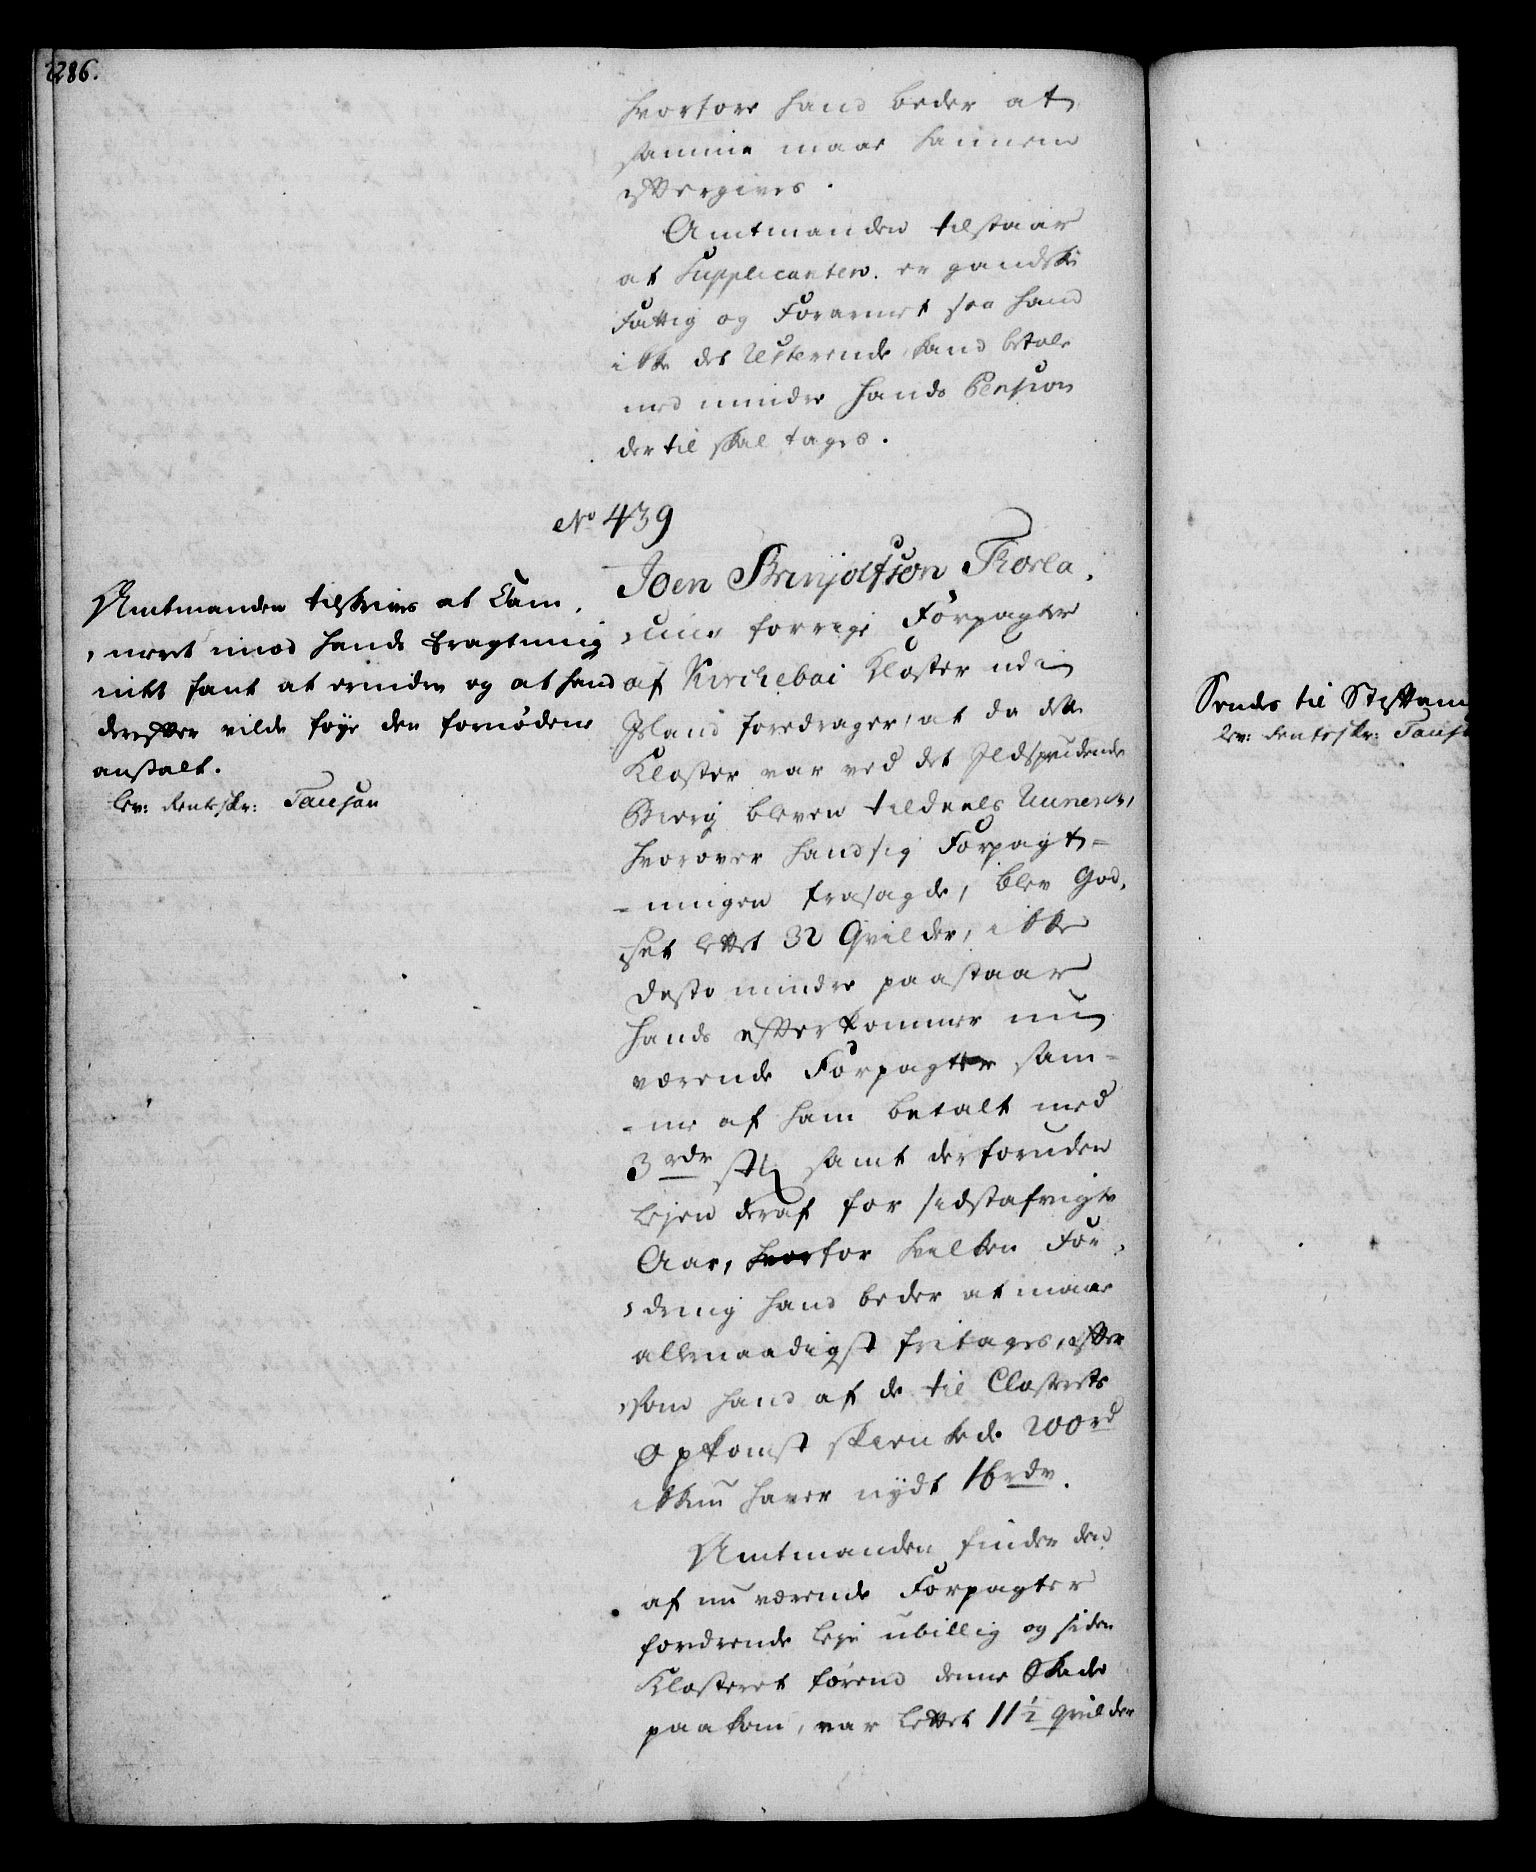 2286.
hvorfore hand beder at
samme maae hannem
eftergives.
Amtmanden tilstaar
at Supplicanten er gandske
Fattig og Forarmet saa hand
ikke det Resterende kand betale
med mindre hands Pension
dertil skal tages.
No 439
Joen Brinjolfson Thorla,
forrige Forpagter
af Kirchebai Kloster udi
Island foredrager, at da dette
Kloster var ved det Ildsprudende
Bierg bleven tildeels
hvorover hand sig Forpagt-
-ningen frasagde, blev God,
set lettet 32 Qvilder, ikke
desto mindre paastaar
hands efterkommer nu
værende Forpagter sam-
-me af ham betalt med
3 rdr st samt desforuden
Lejen deraf for sidstafvigte
Aar, for hvilken For,
,dring hand beder at maae
allernaadigst fritages, efter
,som hand af de til Closterets
Opkomst skienkede 200 rd
ikkun haver nydt 16 rdr.
Amtmanden finder den
af nu værende Forpagter
fordrende leje ubillig og siden
Klosteret førend denne Skade
paakom, var lettet 11 1/2 qvilder
Amtmanden tilskrives at Cam,
,meret imod hands Betragtning
intet fant at erindre og at hand
derefter vilde føye den fornødene
anstalt.
lev: Rentskr: Tausan
Sendes til Stiftam
lev: Renteskr: Taus